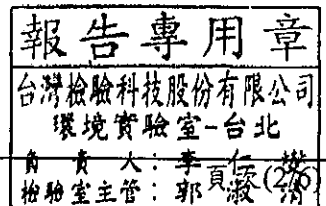 報告專用章
台灣檢驗科技股份有限公司
環境實驗室-台北
負責人：李仁
檢驗室主管：郭淑
頁次(2/6)